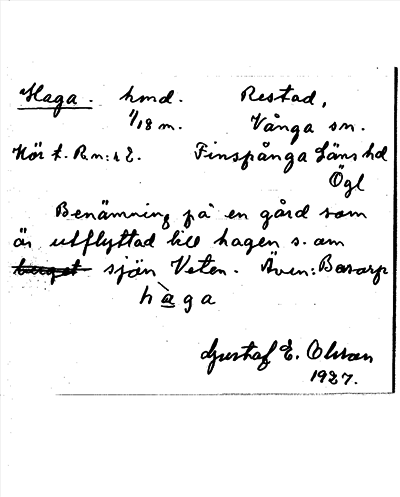 Haga. hmd. Restad,
1/18 m. Vånga sn.
Hör t. R.n:s E. Finspånga Läns hd
Ögl
Benämning på en gård som
är utflyttad till hagen s. om
berget sjön Veten. Även: Basarp
hàga
Gustaf E. Olsson
1927.